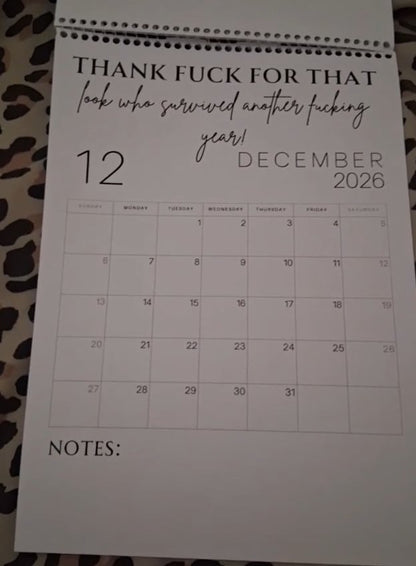 THANK FUCK FOR THAT
look who survived another fucking
year!
12
DECEMBER
2026
SUNDAY MONDAY TUESDAY WEDNESDAY THURSDAY FRIDAY SATURDAY
1 2 3 4 5
6 7 8 9 10 11 12
13 14 15 16 17 18 19
20 21 22 23 24 25 26
27 28 29 30 31
NOTES: